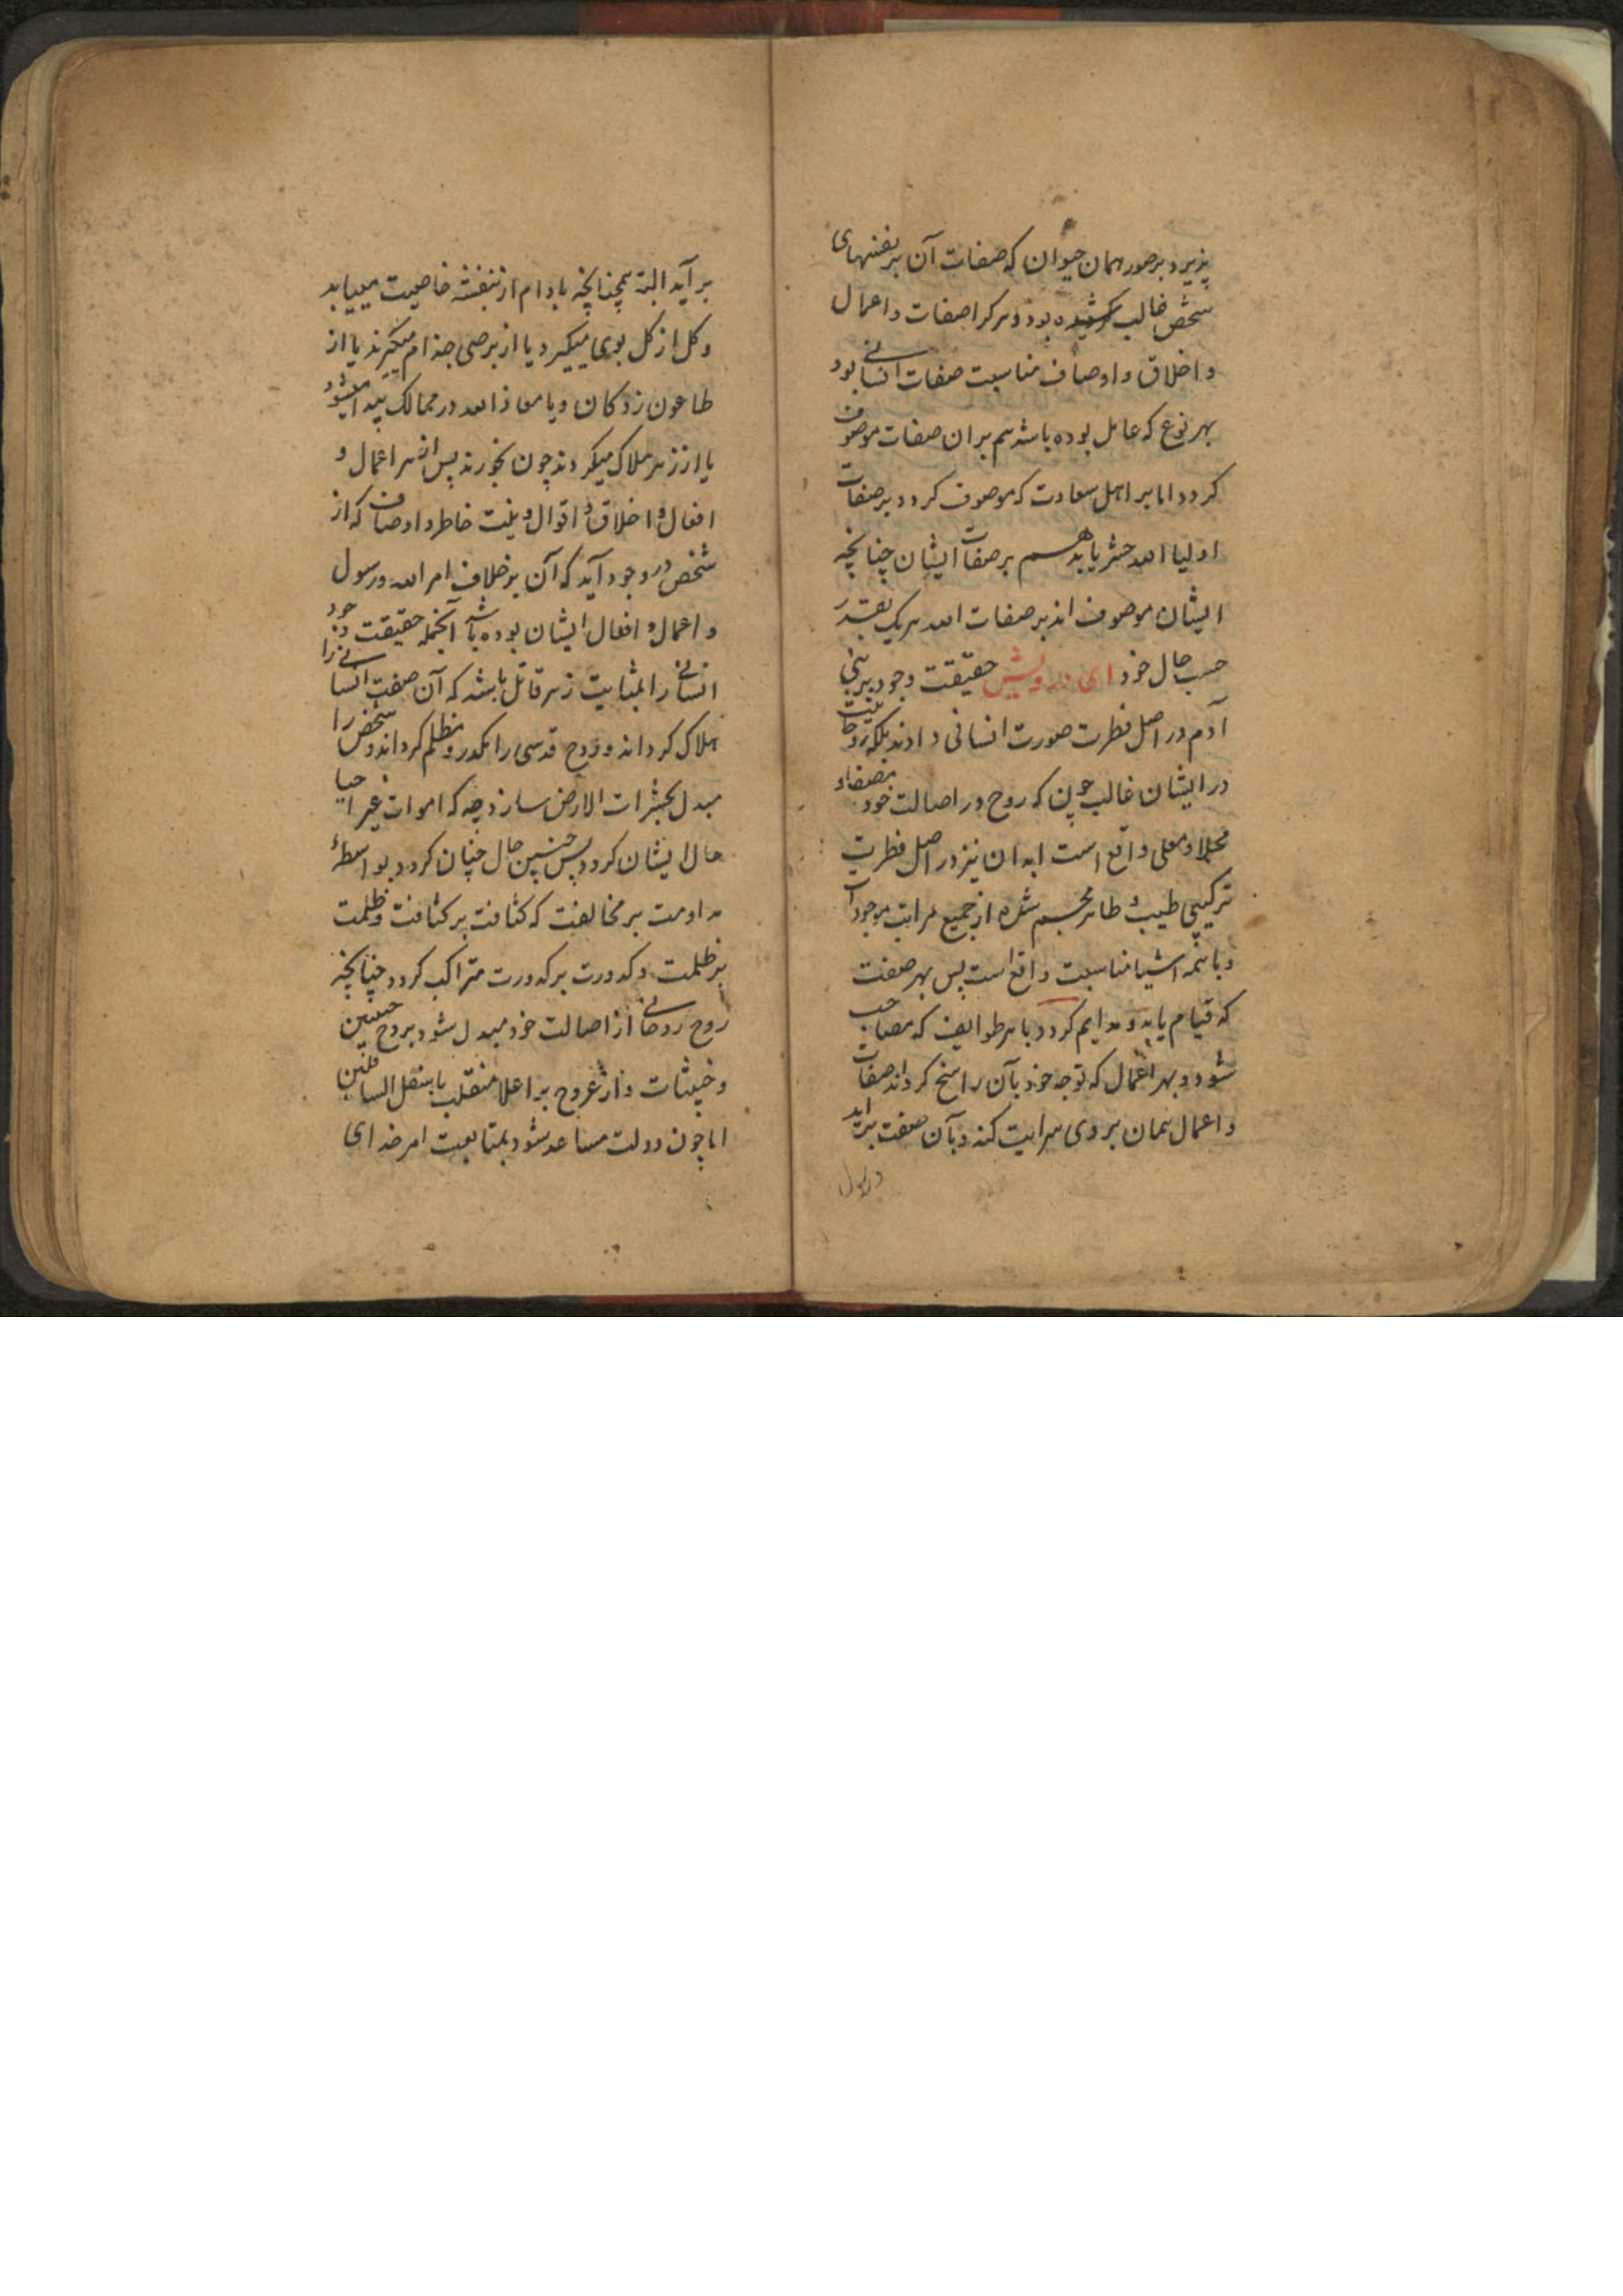 پذیرد بر صور همان حیوان که صفات آن بر نفسهای
شخص غالب بوده و هر کرا صفات و اعمال
و اخلاق و اوصاف مناسبت صفات انسانی بود
بهر نوع که عامل بوده باشد هم بران صفات موصوف
کردد اما بر اهل سعادت که موصوف کردد بر صفات
اولیا الله حشر یابد هم بر صفات ایشان چنانچه
ایشان موصوف اند بر صفات الله هر یک بقدر
حسب حال خود ای درویش حقیقت وجود بر بنی
آدم در اصل فطرت صورت انسانی دادند بلکه روحانیت
در ایشان غالب چون که روح در اصالت خود مصفا و
مجلا و معلی واقع است ابدان نیز در اصل فطرت
ترکیبی طیب و طاهر مجسم شده از جمیع مراتب موجودات
و با همه اشیا مناسبت واقع است پس بهر صفت
که قیام یابد و مدایم کردد با هر طوایف که مصاحب
شود و بهر اعمال که توجه خود بآن راسخ کرداند صفات
و اعمال همان بر وی سرایت کند و بآن صفت براید
بر آید البته همچنانچه بادام از بنفشه خاصیت مییابد
و کل از کل بوی میکیرد یا از برصی جذام میکیرند یا از
طاعون زدکان وبا معاذ الله در ممالک پیدا میشود
یا از زهر هلاک میکردند چون بخورند پس از هر اعمال و
افعال و اخلاق و اقوال و نیت خاطر و اوصاف که از
شخص در وجود آید که آن بر خلاف امر الله و رسول
و اعمال و افعال ایشان بوده باشد آنجمله حقیقت وجود
انسانی را بمثابت زهر قاتل باشد که آن صفت انسانی را
هلاک کرداند و روح قدسی را مکدر و مظلم کرداند و شخص را
مبدل بحشرات الارض سازد چه که اموات غیر احیا
حال ایشان کردد پس چنین حال چنان کردد بواسطهٔ
مداومت بر مخالفت که کثافت بر کثافت و ظلمت
بر ظلمت و کدورت بر کدورت متراکب کردد چنانچه
روح روحانی از اصالت خود مبدل شود بروح
و خبیثات و از عروج بر اعلا منقلب باسفل السافلین
اما چون دولت مساعد شود بمتابعت امر خدای